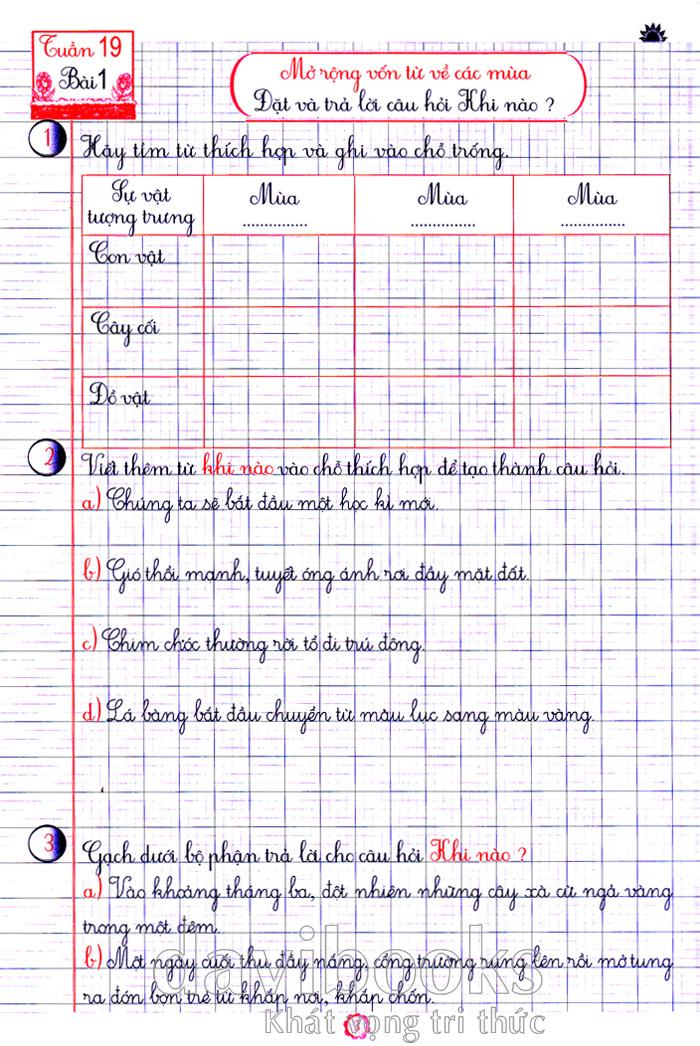 Tuần 19
Bài 1
Mở rộng vốn từ về các mùa
Đặt và trả lời câu hỏi Khi nào ?
1 Hãy tìm từ thích hợp và ghi vào chỗ trống.
Sự vật tượng trưng
Mùa ..............
Mùa ..............
Mùa ..............
Con vật
Cây cối
Đồ vật
2 Viết thêm từ khi nào vào chỗ thích hợp để tạo thành câu hỏi.
a) Chúng ta sẽ bắt đầu một học kì mới.
b) Gió thổi mạnh, tuyết óng ánh rơi đầy mặt đất.
c) Chim chóc thường rời tổ đi trú đông.
d) Lá bàng bắt đầu chuyển từ màu lục sang màu vàng.
3 Gạch dưới bộ phận trả lời cho câu hỏi Khi nào ?
a) Vào khoảng tháng ba, đột nhiên những cây xà cừ ngả vàng
trong một đêm.
b) Một ngày cuối thu đầy nắng, cổng trường rung lên rồi mở tung
ra đón bọn trẻ từ khắp nơi, khắp chốn.
davibooks
Khát vọng tri thức